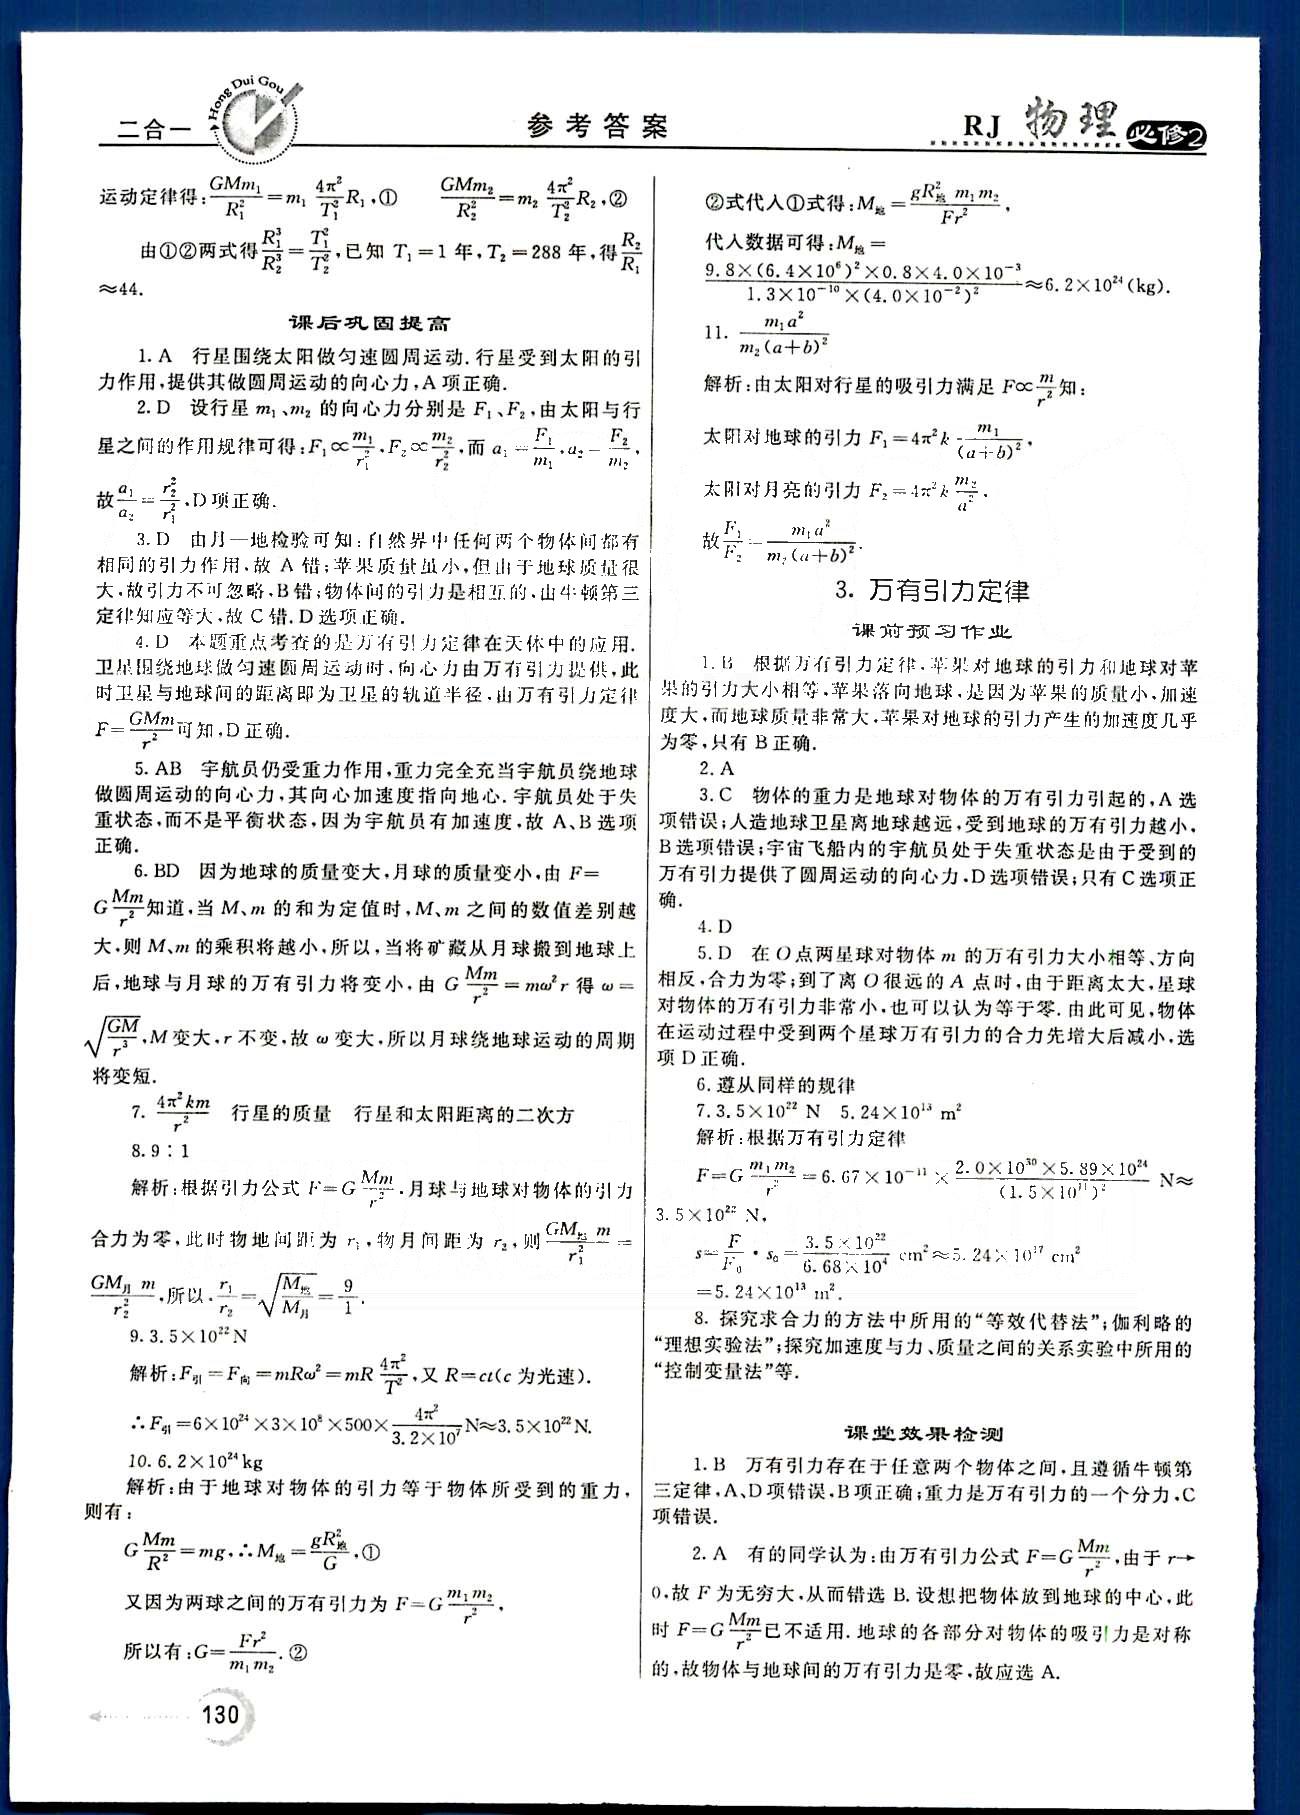 二合一
Hong Dui Gou
参考答案
RJ 物理 必修2
运动定律得:GMm₁/R₁²=m₁ 4π²/T₁² R₁,① GMm₂/R₂²=m₂ 4π²/T₂² R₂,②
由①②两式得R₁³/R₂³=T₁²/T₂²,已知 T₁=1 年,T₂=288 年,得R₂/R₁
≈44.
课后巩固提高
1.A 行星围绕太阳做匀速圆周运动.行星受到太阳的引
力作用,提供其做圆周运动的向心力,A 项正确.
2.D 设行星 m₁、m₂ 的向心力分别是 F₁、F₂,由太阳与行
星之间的作用规律可得:F₁∝m₁/r₁²,F₂∝m₂/r₂²,而 a₁=F₁/m₁,a₂=F₂/m₂,
故a₁/a₂=r₂²/r₁²,D 项正确.
3.D 由月—地检验可知:自然界中任何两个物体间都有
相同的引力作用,故 A 错;苹果质量虽小,但由于地球质量很
大,故引力不可忽略,B 错;物体间的引力是相互的,由牛顿第三
定律知应等大,故 C 错.D 选项正确.
4.D 本题重点考查的是万有引力定律在天体中的应用.
卫星围绕地球做匀速圆周运动时,向心力由万有引力提供,此
时卫星与地球间的距离即为卫星的轨道半径,由万有引力定律
F=GMm/r²可知,D 正确.
5.AB 宇航员仍受重力作用,重力完全充当宇航员绕地球
做圆周运动的向心力,其向心加速度指向地心.宇航员处于失
重状态,而不是平衡状态,因为宇航员有加速度,故 A、B 选项
正确.
6.BD 因为地球的质量变大,月球的质量变小,由 F=
G Mm/r²知道,当 M、m 的和为定值时,M、m 之间的数值差别越
大,则 M、m 的乘积将越小,所以,当将矿藏从月球搬到地球上
后,地球与月球的万有引力将变小,由 G Mm/r²=mω²r 得 ω=
√(GM/r³),M 变大,r 不变,故 ω 变大,所以月球绕地球运动的周期
将变短.
7. 4π²km/r² 行星的质量 行星和太阳距离的二次方
8.9∶1
解析:根据引力公式 F=G Mm/r²,月球与地球对物体的引力
合力为零,此时物地间距为 r₁,物月间距为 r₂,则GM地m/r₁²=
GM月m/r₂²,所以,r₁/r₂=√(M地/M月)=9/1.
9.3.5×10²²N
解析:F引=F向=mRω²=mR 4π²/T²,又 R=ct(c 为光速).
∴F引=6×10²⁴×3×10⁸×500×4π²/3.2×10⁷N≈3.5×10²²N.
10.6.2×10²⁴kg
解析:由于地球对物体的引力等于物体所受到的重力,
则有:
G Mm/R²=mg,∴M地=gR地²/G,①
又因为两球之间的万有引力为 F=G m₁m₂/r²,
所以有:G=Fr²/m₁m₂.②
130
②式代入①式得:M地=gR地² m₁m₂/Fr²,
代入数据可得:M地=
9.8×(6.4×10⁶)²×0.8×4.0×10⁻³/1.3×10⁻¹⁰×(4.0×10⁻²)²≈6.2×10²⁴(kg).
11. m₁a²/m₂(a+b)²
解析:由太阳对行星的吸引力满足 F∝m/r²知:
太阳对地球的引力 F₁=4π²k·m₁/(a+b)²,
太阳对月亮的引力 F₂=4π²k m₂/a²,
故F₁/F₂=m₁a²/m₂(a+b)².
3. 万有引力定律
课前预习作业
1.B 根据万有引力定律,苹果对地球的引力和地球对苹
果的引力大小相等,苹果落向地球,是因为苹果的质量小,加速
度大,而地球质量非常大,苹果对地球的引力产生的加速度几乎
为零,只有 B 正确.
2.A
3.C 物体的重力是地球对物体的万有引力引起的,A 选
项错误;人造地球卫星离地球越远,受到地球的万有引力越小,
B 选项错误;宇宙飞船内的宇航员处于失重状态是由于受到的
万有引力提供了圆周运动的向心力,D 选项错误;只有 C 选项正
确.
4.D
5.D 在 O 点两星球对物体 m 的万有引力大小相等、方向
相反,合力为零;到了离 O 很远的 A 点时,由于距离太大,星球
对物体的万有引力非常小,也可以认为等于零.由此可见,物体
在运动过程中受到两个星球万有引力的合力先增大后减小,选
项 D 正确.
6.遵从同样的规律
7.3.5×10²² N 5.24×10¹³ m²
解析:根据万有引力定律
F=G m₁m₂/r²=6.67×10⁻¹¹×2.0×10³⁰×5.89×10²⁴/(1.5×10¹¹)² N≈
3.5×10²² N,
s=F/F₀·s₀=3.5×10²²/6.68×10⁴ cm²≈5.24×10¹⁷ cm²
=5.24×10¹³ m².
8. 探究求合力的方法中所用的“等效代替法”;伽利略的
“理想实验法”;探究加速度与力、质量之间的关系实验中所用的
“控制变量法”等.
课堂效果检测
1.B 万有引力存在于任意两个物体之间,且遵循牛顿第
三定律,A、D 项错误,B 项正确;重力是万有引力的一个分力,C
项错误.
2.A 有的同学认为:由万有引力公式 F=G Mm/r²,由于 r→
0,故 F 为无穷大,从而错选 B.设想把物体放到地球的中心,此
时 F=G Mm/r²已不适用.地球的各部分对物体的吸引力是对称
的,故物体与地球间的万有引力是零,故应选 A.